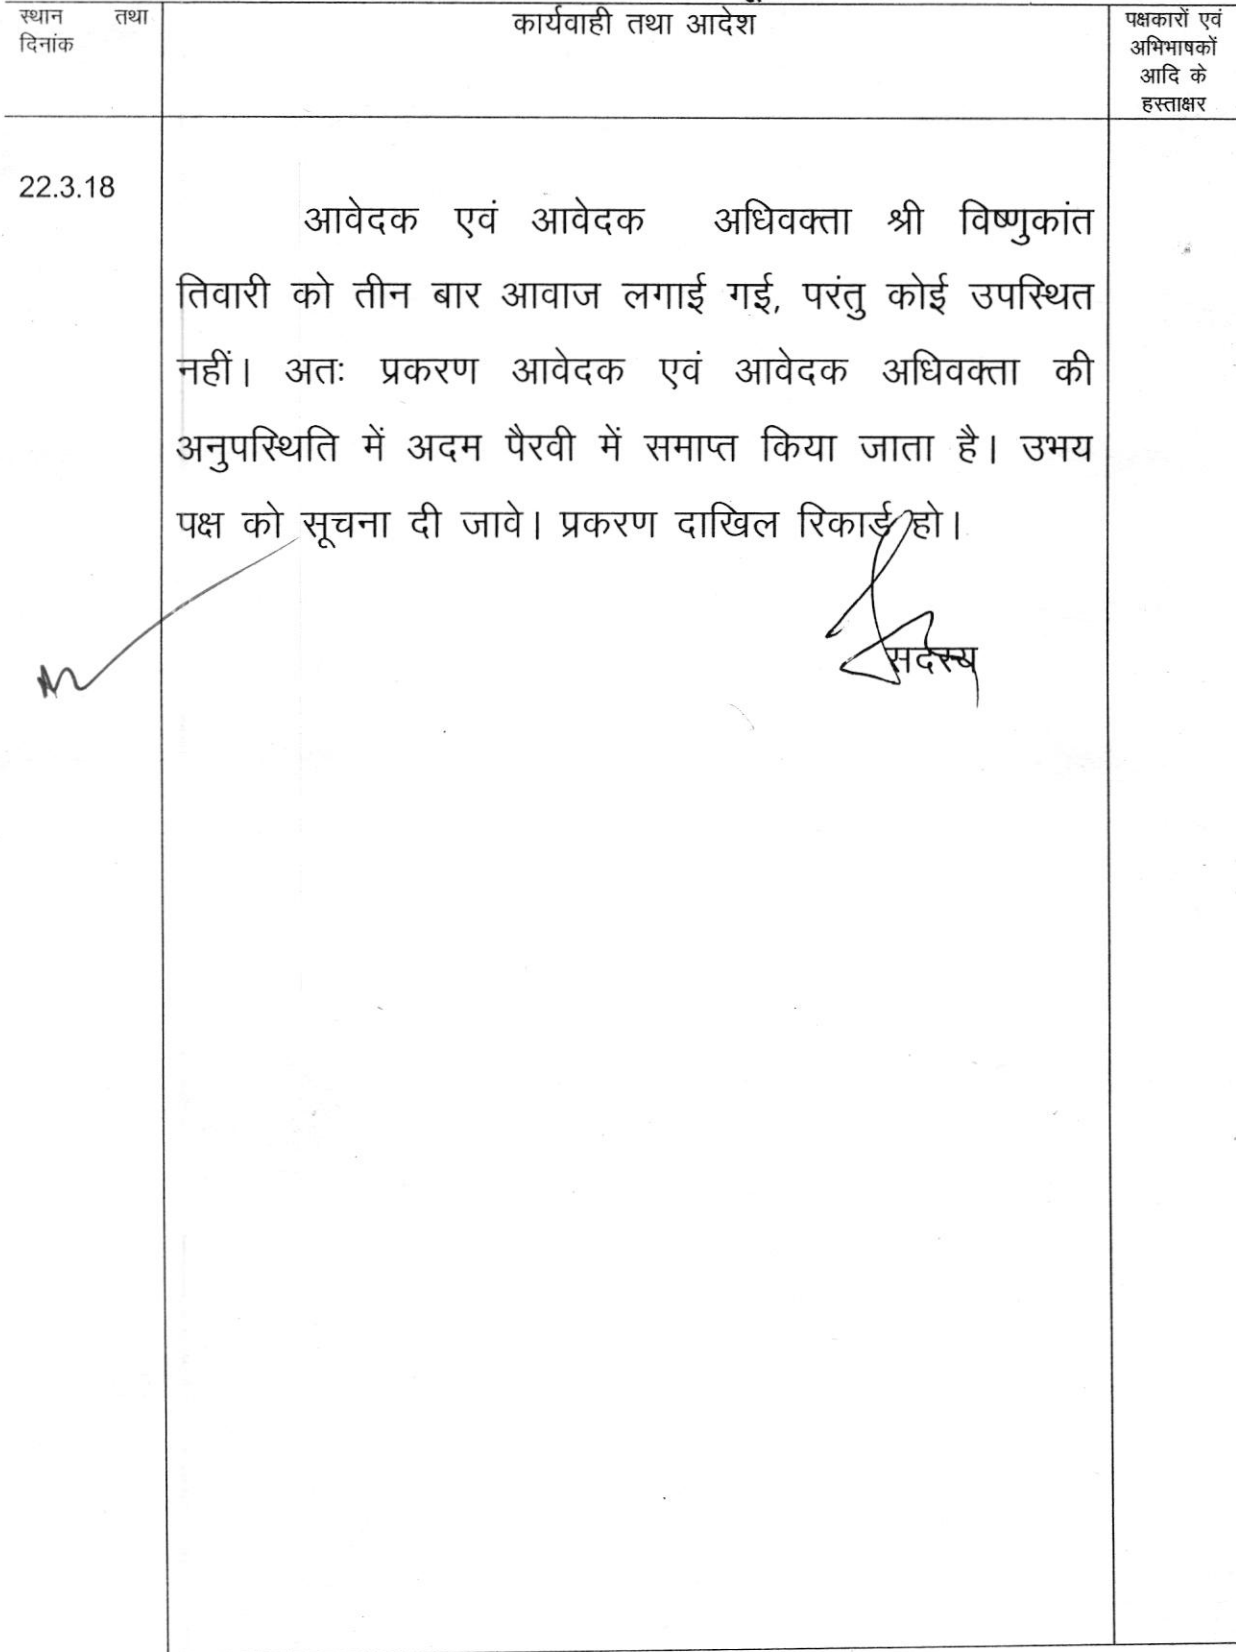 स्थान तथा
दिनांक
कार्यवाही तथा आदेश
पक्षकारों एवं
अभिभाषकों
आदि के
हस्ताक्षर
22.3.18
आवेदक एवं आवेदक अधिवक्ता श्री विष्णुकांत
तिवारी को तीन बार आवाज लगाई गई, परंतु कोई उपस्थित
नहीं। अतः प्रकरण आवेदक एवं आवेदक अधिवक्ता की
अनुपस्थिति में अदम पैरवी में समाप्त किया जाता है। उभय
पक्ष को सूचना दी जावे। प्रकरण दाखिल रिकार्ड हो।
सदस्य